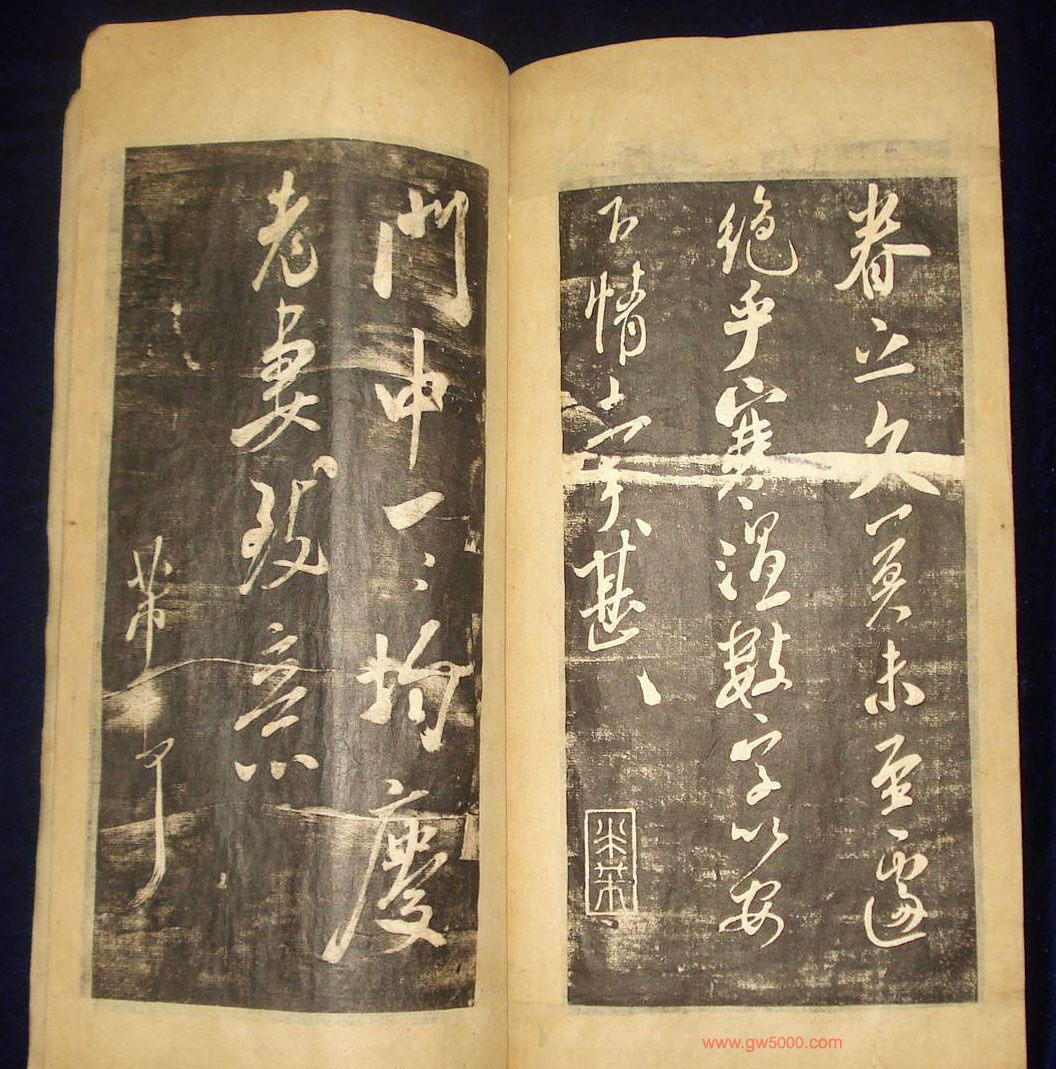 眷之久莫未至遽
絕乎寒溫數字以安
下情幸甚
米芾
門中一一均慶
老妻致意
芾
www.gw5000.com